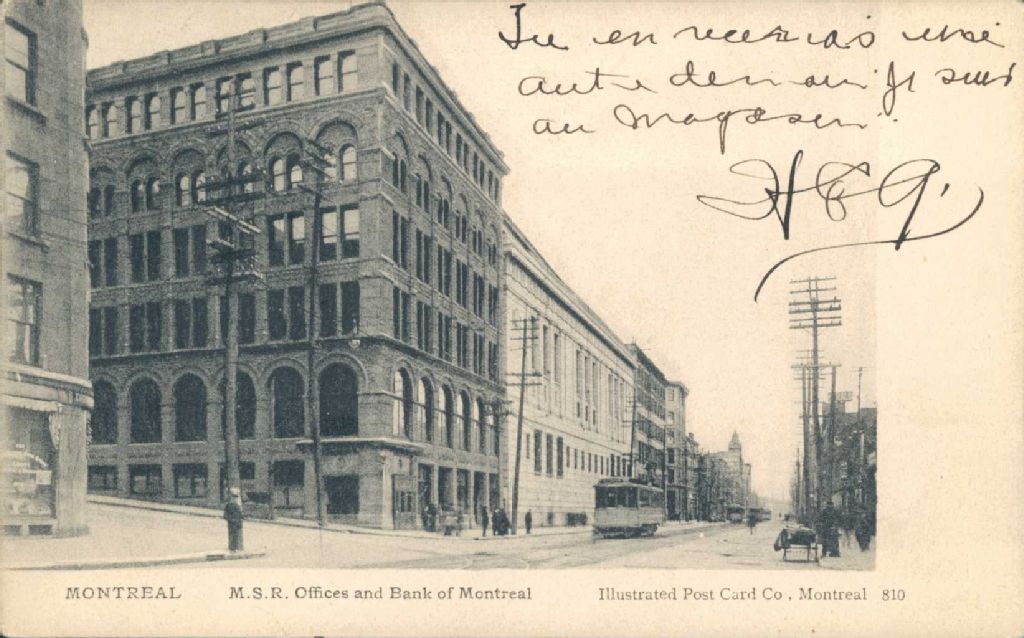 Tu en recevras une
autre demain Je suis
au Magasin.
MONTREAL M.S.R. Offices and Bank of Montreal Illustrated Post Card Co, Montreal 810